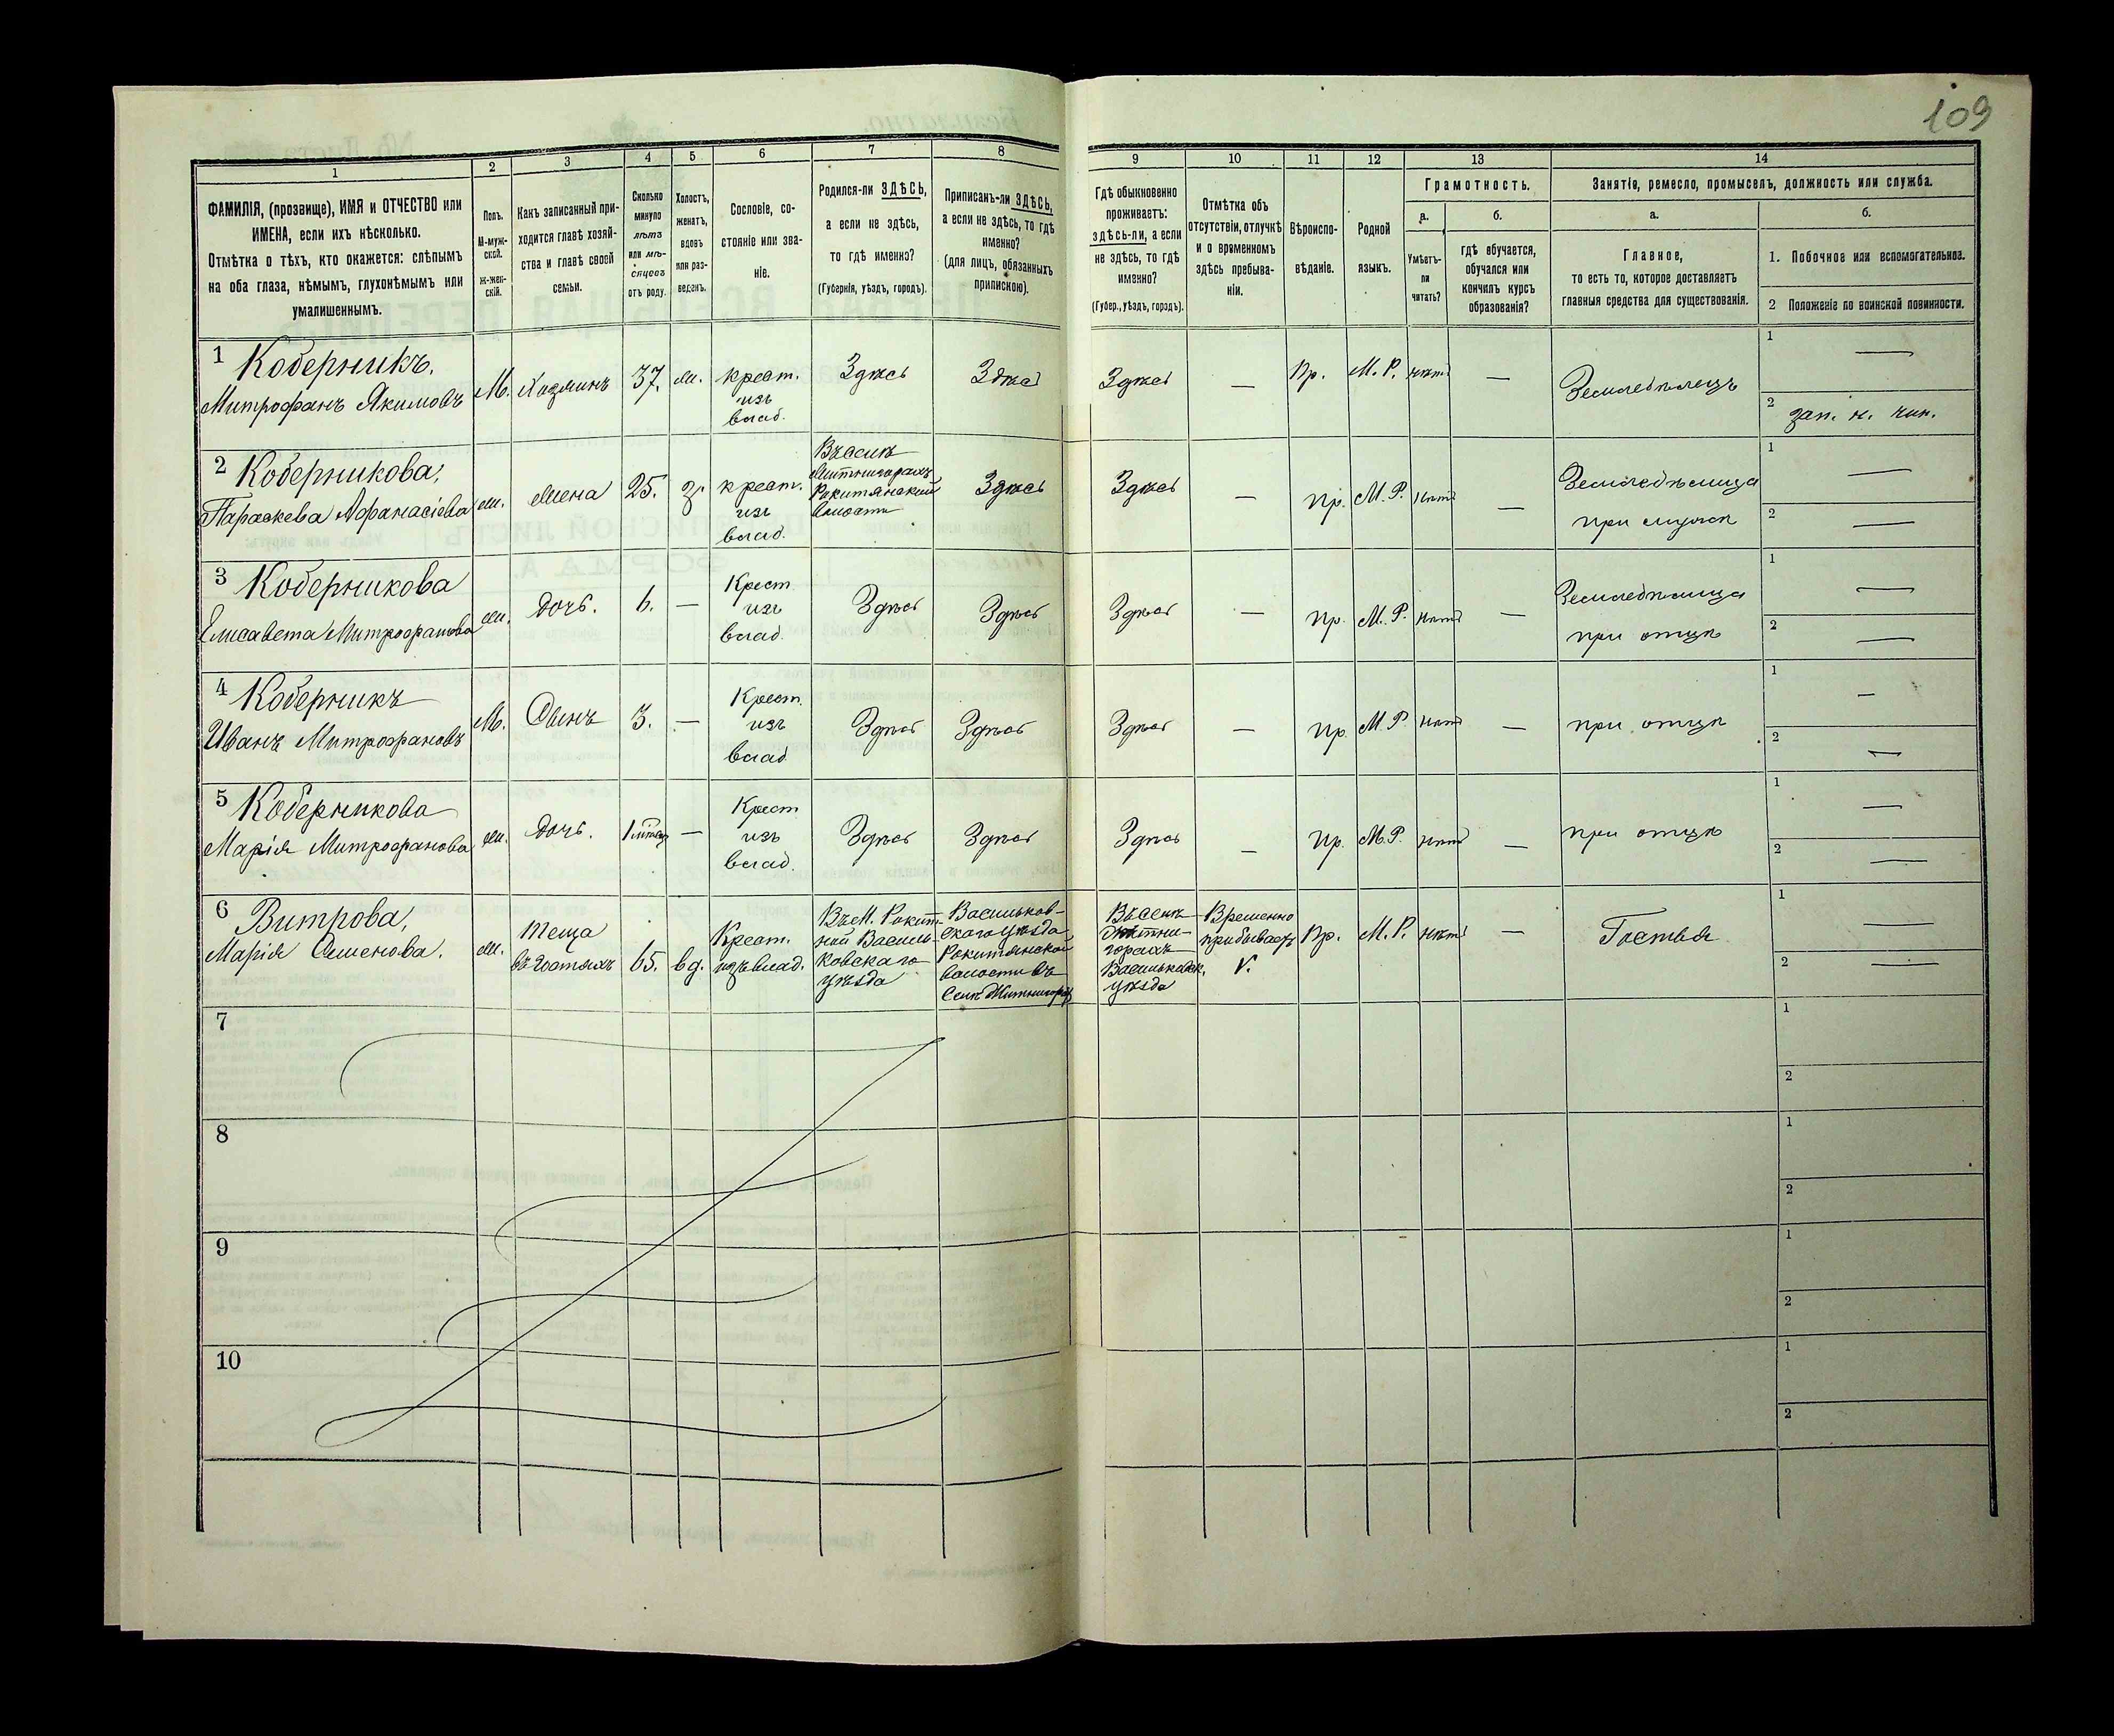 109
1
2
3
4
5
6
7
8
9
10
11
12
13
14
ФАМИЛІЯ, (прозвище), ИМЯ и ОТЧЕСТВО или
ИМЕНА, если ихъ нѣсколько.
Отмѣтка о тѣхъ, кто окажется: слѣпымъ
на оба глаза, нѣмымъ, глухонѣмымъ или
умалишеннымъ.
Полъ.
М-муж-
ской.
ж-жен-
скій.
Какъ записанный при-
ходится главѣ хозяй-
ства и главѣ своей
семьи.
Сколько
минуло
лѣтъ
или мѣ-
сяцевъ
отъ роду.
Холостъ,
женатъ,
вдовъ
или раз-
веденъ.
Сословіе, со-
стояніе или зва-
ніе.
Родился-ли ЗДѢСЬ,
а если не здѣсь,
то гдѣ именно?
(Губернія, уѣздъ, городъ).
Приписанъ-ли ЗДѢСЬ,
а если не здѣсь, то гдѣ
именно?
(для лицъ, обязанныхъ
припискою).
Гдѣ обыкновенно
проживаетъ:
здѣсь-ли, а если
не здѣсь, то гдѣ
именно?
(Губер., уѣздъ, городъ).
Отмѣтка объ
отсутствіи, отлучкѣ
и о временномъ
здѣсь пребыва-
ніи.
Вѣроиспо-
вѣданіе.
Родной
языкъ.
Грамотность.
а.
б.
Умѣетъ-
ли
читать?
гдѣ обучается,
обучался или
кончилъ курсъ
образованія?
Занятіе, ремесло, промыселъ, должность или служба.
а.
б.
Главное,
то есть то, которое доставляетъ
главныя средства для существованія.
1. Побочное или вспомогательное.
2 Положеніе по воинской повинности.
1 Коберникъ.
Митрофанъ Якимовъ
М.
Хозяинъ
37.
ж.
крест.
изъ
влад.
Здѣсь
Здѣсь
Здѣсь
—
Пр.
М. Р.
нѣтъ
—
Земледѣлецъ
1 —
2 зап. н. чин.
2 Коберникова,
Параскева Афанасіева
ж.
жена
25.
з.
крест.
изъ
влад.
Въ селѣ
Житнигорахъ
Рокитянской
волости
Здѣсь
Здѣсь
—
Пр.
М. Р.
нѣтъ
—
Земледѣлица
при мужѣ
1 —
2 —
3 Коберникова
Елисавета Митрофанова
ж.
дочь.
6.
—
Крест
изъ
влад.
Здѣсь
Здѣсь
Здѣсь
—
Пр.
М. Р.
нѣтъ
—
Земледѣлица
при отцѣ
1 —
2 —
4 Коберникъ
Иванъ Митрофановъ
М.
Сынъ
3.
—
Крест.
изъ
влад.
Здѣсь
Здѣсь
Здѣсь
—
Пр.
М. Р.
нѣтъ
—
при отцѣ
1 —
2 —
5 Коберникова
Марія Митрофанова
ж.
дочь.
—
Крест
изъ
влад.
Здѣсь
Здѣсь
Здѣсь
—
Пр.
М. Р.
нѣтъ
—
при отцѣ
1 —
2 —
6 Витрова,
Марія Семенова.
ж.
теща
въ гостяхъ
65.
вд.
Крест.
изъ влад.
Въ М. Рокит-
ной Василь-
ковскаго
уѣзда
Васильков-
скаго уѣзда
Рокитянской
волости въ
селѣ Житнигорахъ
Въ селѣ
Житни-
горахъ
Васильковск.
уѣзда
Временно
прибываетъ
V.
Пр.
М. Р.
нѣтъ
—
Гостья
1 —
2 —
7
1
2
8
1
2
9
1
2
10
1
2